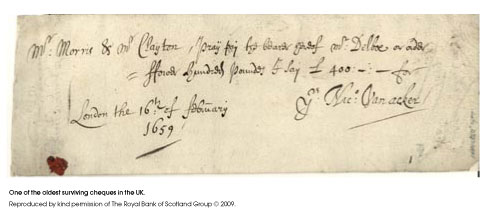 Mr. Morris & Mr. Clayton, Pray pay the bearer hereof Mr. Delboe or order
ffower hundred poundes I say £ 400 : - : - for
London the 16th of february
1659
Yrs Nic: Vanacker
One of the oldest surviving cheques in the UK.
Reproduced by kind permission of The Royal Bank of Scotland Group © 2009.